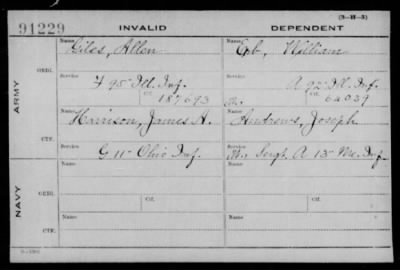 (3-H-3)
91229 INVALID DEPENDENT
Name Name
Giles, Allen William
ARMY
ORIG.
Service Service
F 95 Ill. Inf. A 92 Ill. Inf.
Ctf. 187693 Ctf. 62039
Name Name
Harrison, James A. Andrews, Joseph
CTF.
Service Service
G 11 Ohio Inf. Sergt. A 13 Me. Inf.
NAVY
Name Name
ORIG.
Service Service
Ctf. Ctf.
Name Name
CTF.
Service Service